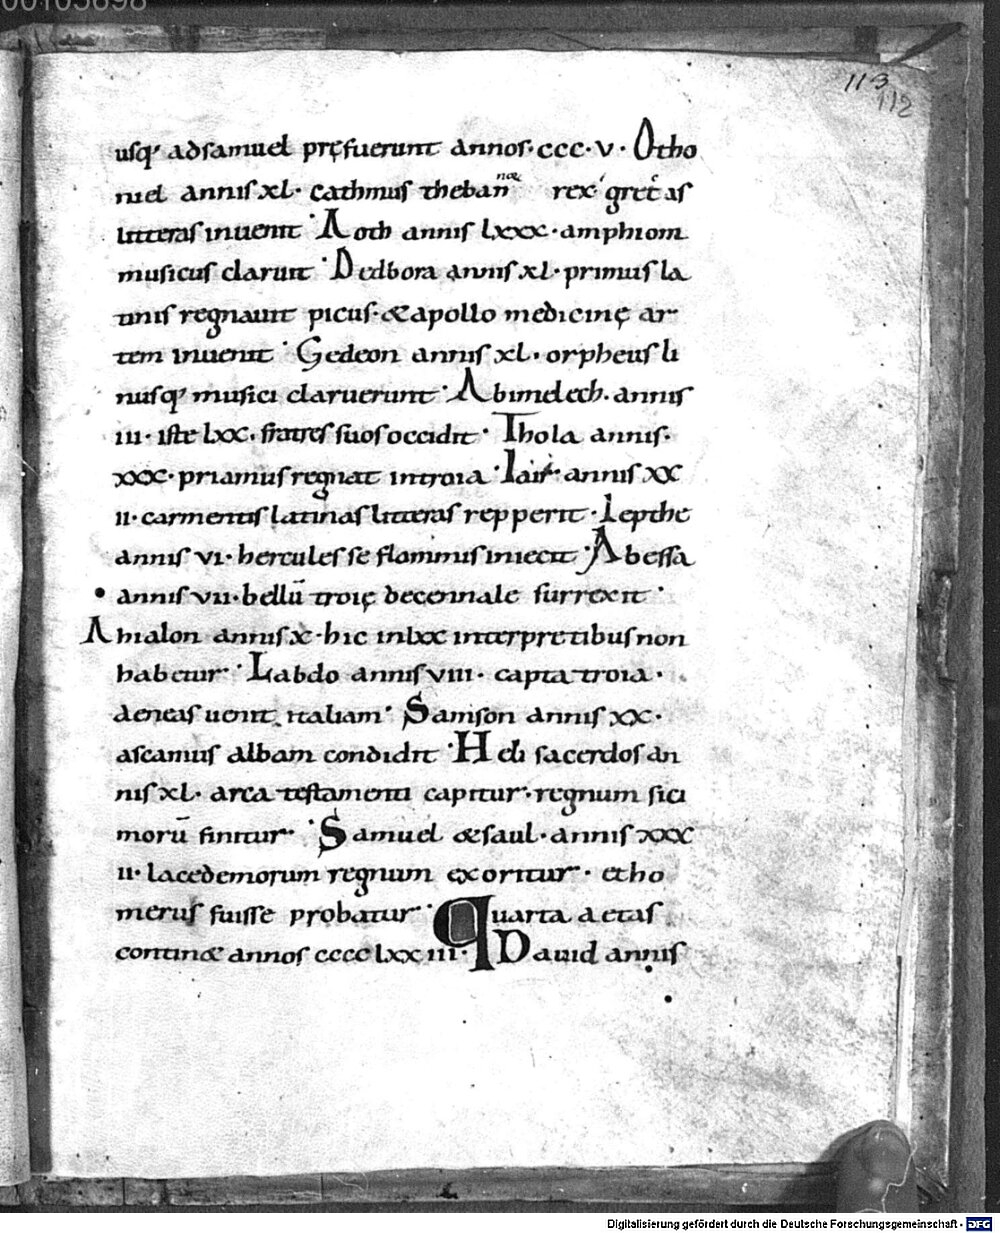 00105698
113
112
usq' adsamuel pręfuerunt annos·ccc·v· Otho
niel annis xl· cathmus theban rex grecas
litteras inuenit · Aoth annis lxxx· amphiom
musicus claruit · Dedbora annis xl· primus la
tinis regnauit picus· &apollo medicinę ar
tem inuenit · Gedeon annis xl· orpheus li
nusq' musici claruerunt · Abimelech· annis
iii· iste lxx· fratres suos occidit · Thola annis·
xxx· priamus regnat introia · Iair annis xx
ii· carmentis latinas litteras repperit · Iepthe
annis vi· hercules se flammis iniecit · Abessa
annis vii· bellū troię decennale surrexit ·
Ahialon annis x· hic inlxx interpretibus non
habetur · Labdo annis viii· capta troia·
aeneas uenit italiam · Samson annis xx·
ascanius albam condidit · Heli sacerdos an
nis xl· arca testamenti capitur· regnum sici
moru̅ finitur · Samuel &saul· annis xxx
ii· lacedemorum regnum exoritur · etho
merus fuisse probatur · Quarta aetas
contin& annos cccc lxx iii· Dauid annis
Digitalisierung gefördert durch die Deutsche Forschungsgemeinschaft - DFG